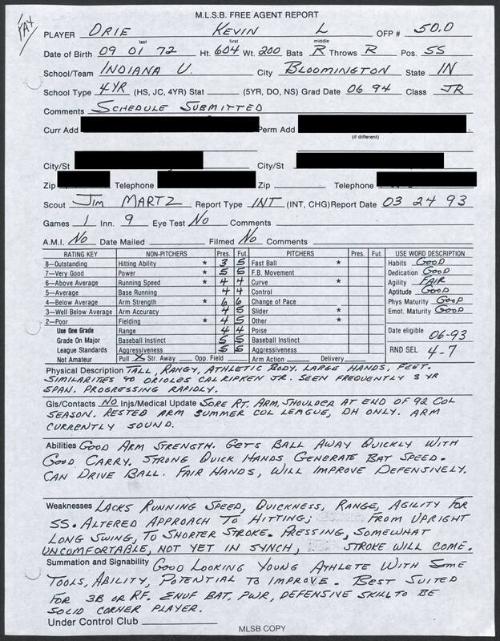 M.L.S.B. FREE AGENT REPORT
FAX
PLAYER ORIE KEVIN L OFP # 50.0
last first middle
Date of Birth 09 01 72 Ht. 604 Wt. 200 Bats R Throws R Pos. SS
School/Team INDIANA U. City BLOOMINGTON State IN
School Type 4YR (HS, JC, 4YR) Stat (5YR, DO, NS) Grad Date 06 94 Class JR
Comments SCHEDULE SUBMITTED
Curr Add Perm Add
(if different)
City/St City/St
Zip Telephone Zip Telephone
Scout JIM MARTZ Report Type INT (INT, CHG) Report Date 03 24 93
Games 1 Inn. 9 Eye Test NO Comments
A.M.I. NO Date Mailed Filmed NO Comments
RATING KEY NON-PITCHERS Pres. Fut. PITCHERS Pres. Fut. USE WORD DESCRIPTION
8–Outstanding Hitting Ability * 3 5 Fast Ball * Habits GOOD
7–Very Good Power * 5 5 F.B. Movement Dedication GOOD
6–Above Average Running Speed * 4 4 Curve * Agility FAIR
5–Average Base Running 4 4 Control Aptitude GOOD
4–Below Average Arm Strength * 6 6 Change of Pace Phys Maturity GOOD
3–Well Below Average Arm Accuracy 4 5 Slider * Emot. Maturity GOOD
2–Poor Fielding * 4 5 Other *
Use One Grade Range 4 4 Poise Date eligible 06-93
Grade On Major Baseball Instinct 5 5 Baseball Instinct
League Standards Aggressiveness 5 5 Aggressiveness RND SEL 4-7
Not Amateur Pull Str. Away Opp. Field Arm Action Delivery
Physical Description TALL, RANGY, ATHLETIC BODY. LARGE HANDS, FEET.
SIMILARITIES TO ORIOLES CAL RIPKEN JR. SEEN FREQUENTLY 3 YR
SPAN. PROGRESSING RAPIDLY.
Gls/Contacts NO Injs/Medical Update SORE RT. ARM, SHOULDER AT END OF 92 COL
SEASON. RESTED ARM SUMMER COL LEAGUE, DH ONLY. ARM
CURRENTLY SOUND.
Abilities GOOD ARM STRENGTH. GETS BALL AWAY QUICKLY WITH
GOOD CARRY. STRONG QUICK HANDS GENERATE BAT SPEED.
CAN DRIVE BALL. FAIR HANDS, WILL IMPROVE DEFENSIVELY.
Weaknesses LACKS RUNNING SPEED, QUICKNESS, RANGE, AGILITY FOR
SS. ALTERED APPROACH TO HITTING; FROM UPRIGHT
LONG SWING, TO SHORTER STROKE. PRESSING, SOMEWHAT
UNCOMFORTABLE, NOT YET IN SYNCH, STROKE WILL COME.
Summation and Signability GOOD LOOKING YOUNG ATHLETE WITH SOME
TOOLS, ABILITY, POTENTIAL TO IMPROVE. BEST SUITED
FOR 3B OR RF. ENUF BAT, PWR, DEFENSIVE SKILL TO BE
SOLID CORNER PLAYER.
Under Control Club
MLSB COPY